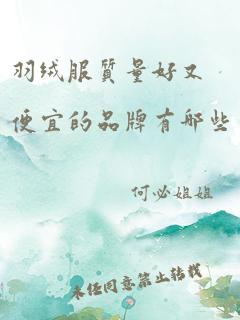 羽绒服質量好又
便宜的品牌有哪些
何必姐姐
未经同意禁止转载